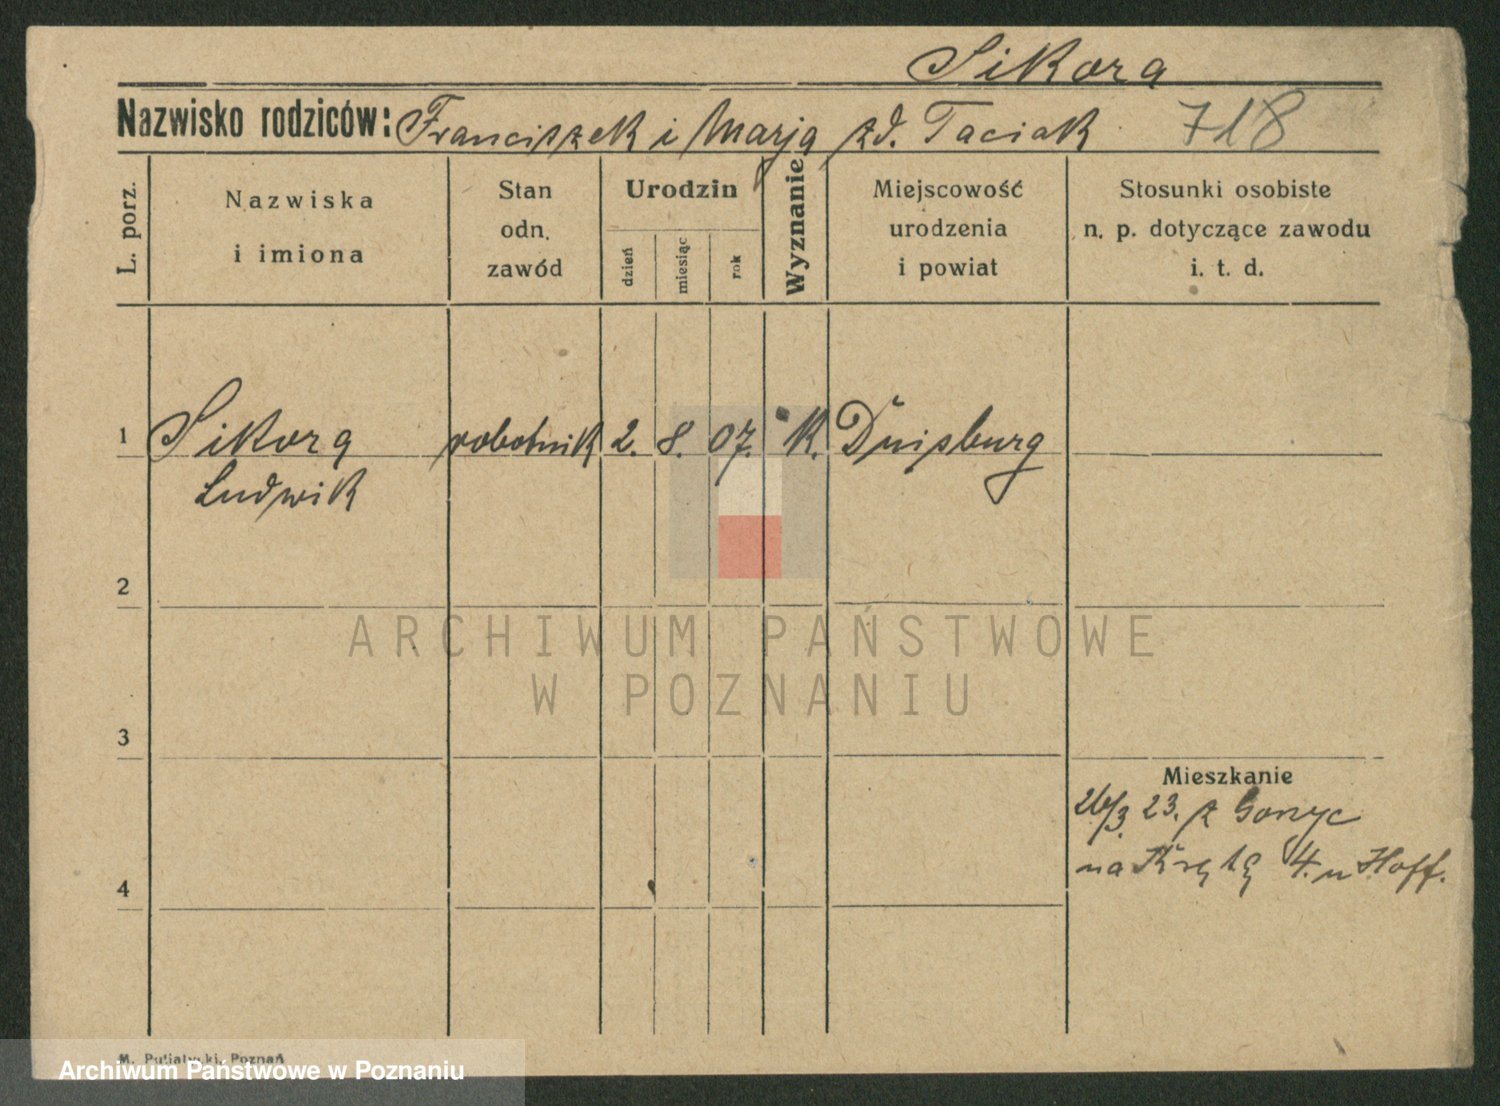 Sikora
Nazwisko rodziców: Franciszek i Marja zd. Taciak 718
L. porz.
Nazwiska
i imiona
Stan
odn.
zawód
Urodzin
dzień
miesiąc
rok
Wyznanie
Miejscowość
urodzenia
i powiat
Stosunki osobiste
n. p. dotyczące zawodu
i. t. d.
1 Sikora robotnik 2. 8. 07. K. Duisburg
Ludwik
2
ARCHIWUM PAŃSTWOWE
W POZNANIU
3
Mieszkanie
26/3. 23. z
na Krętą 4. u Hoff.
4
M. Putiatycki, Poznań
Archiwum Państwowe w Poznaniu